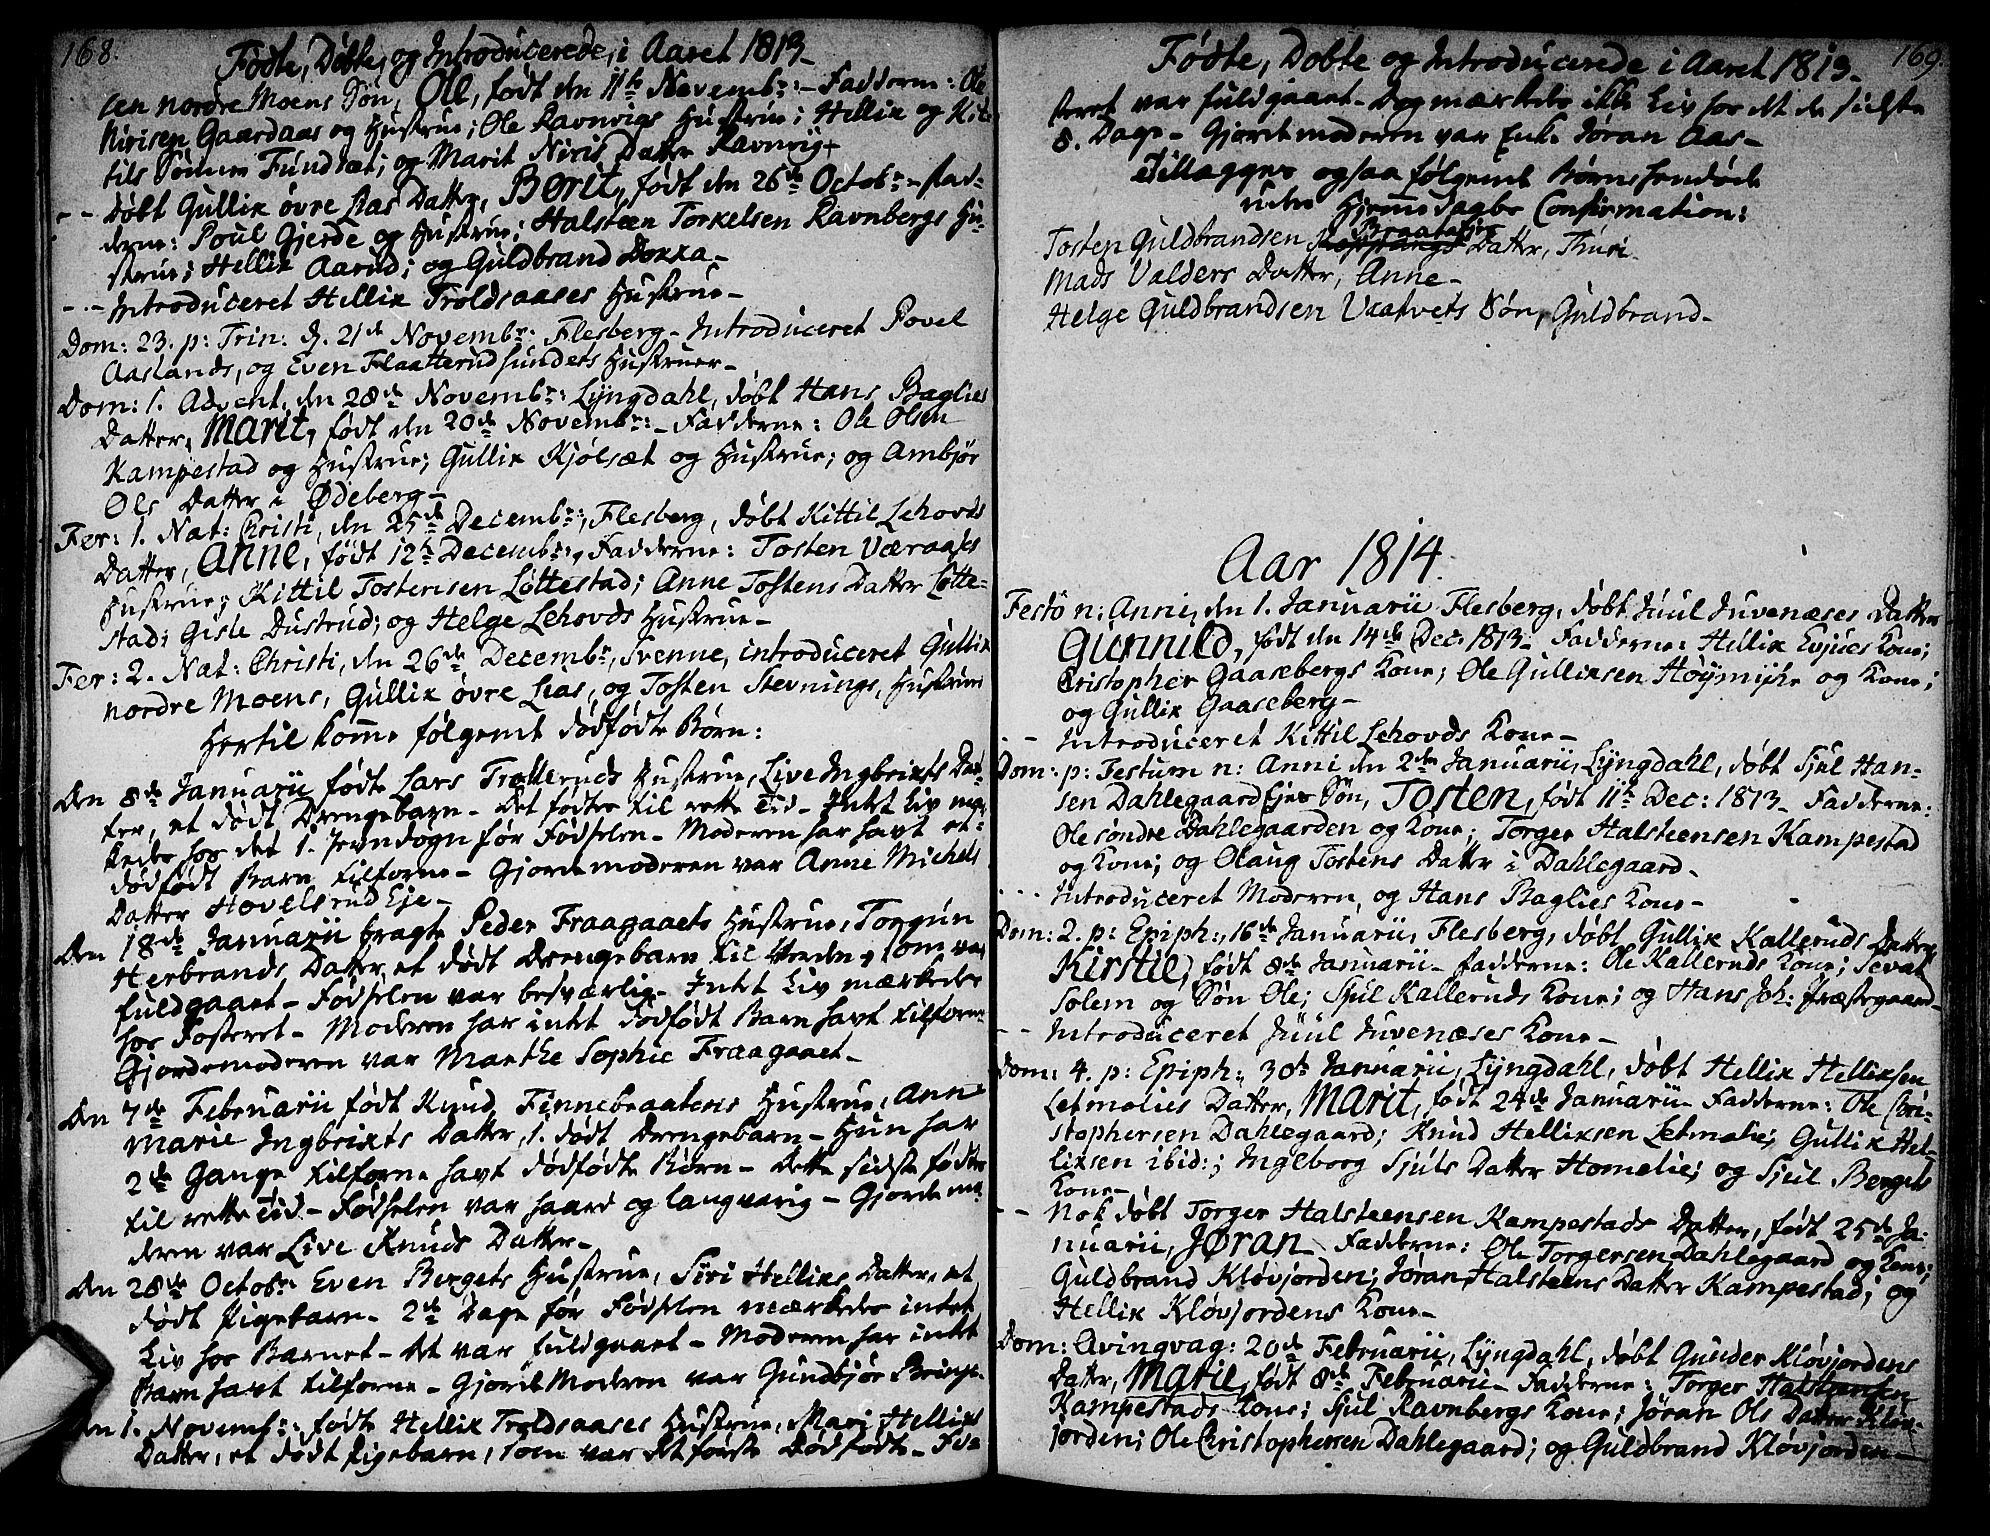 168.
Fødte, Døbte, og Introducerede, i Aaret 1813.
sen nordre Moens Søn, Ole, født den 11te Novembr: - Fadderne: Ole
Nirisen Gaardaas og Hustrue; Ole Ravnvigs Hustrue; Hellik og Kit-
tils Sønner Fundsæt; og Marit Niris Datter Ravnvig
- - døbt Gullik øvre Lias Datter, Børit, født den 26de Octobr: - Fad-
derne: Poul Gjerde og Hustrue; Halsteen Torkelsen Ravnbergs Hu-
strue; Hellik Aarud; og Guldbrand Dokka -
- - Introduceret Hellik Troldsaases Hustrue -
Dom: 23. p: Trin: d. 21de Novembr: Flesberg - Introduceret Povel
Aaslands, og Even Flaatterudhundets Hustruer -
Dom: 1. Advent, den 28de Novembr: Lÿngdahl, døbt Hans Baglies
Datter, Marit, født den 20de Novembr: - Fadderne: Ole Olsen
Kampestad og Hustrue; Gullik Kjølsæt og Hustrue; og Ambjør
Ols Datter i Ødeberg -
Fer: 1. Nat: Christi, den 25de Decembr: Flesberg, døbt Kittil Lehovds
Datter, Anne, født 12te Decembr:, Fadderne: Tosten Væraases
Hustrue; Kittil Tostensen Løttestad; Anne Tostens Datter Løtte-
stad; Gisle Dustrud; og Helge Lehovds Hustrue -
Fer: 2. Nat: Christi, den 26de Decembr, Svenne, introduceret Gullik
nordre Moens, Gullik øvre Lias, og Tosten Stevnings, Hustruer
Hertil komme følgende dødfødte Børn:
Den 8de Januarii fødte Lars Trollerud's Hustrue, Live Ingbrikts Dat-
ter, et dødt Drengebarn - Det fødtes til rette Tid - Intet Liv mær-
kedes hos det 1. Jevndøgn før Fødselen - Moderen har havt et
dødfødt Barn tilforne - Gjordemoderen var Anne Michels
Datter Hovelsrud Eje -
Den 18de Januarii bragte Peder Fraagaaets Hustrue, Torgun
Herbrands Datter, et dødt Drengebarn til Verden, som var
fuldgaaet - Fødselen var besværlig - Intet Liv mærkedes
hos Fosteret - Moderen har intet dødfødt Barn havt tilforne
Gjordemoderen var Marthe Sophie Fraagaaet -
Den 7de Februarii født Knud Finnebraatens Hustrue, Anne
Marie Ingbrikts Datter, 1. dødt Drengebarn - Hun har
2de Gange tilforne havt dødfødte Børn - Dette sidste fødtes
til rette Tid - Fødselen var haard og langvarig - Gjordemo-
deren var Live Knuds Datter -
Den 28de Octobr: Even Bergets Hustrue, Siri Helliks Datter, et
dødt Pigebarn - 2de Dage før Fødselen mærkedes intet
Liv hos Barnet - Det var fuldgaaet - Moderen har intet
Barn havt tilforne - Gjorde Moderen var Gundbjør
Den 1. Novembr: fødte Hellik Troldsaases Hustrue, Mari Helliks
Datter, et dødt Pigebarn, som var det første Dødfødte - Fo-
169
Fødte, Døbte og Introducerede i Aaret 1813.
steret var fuldgaaet - Dog mærkedes ikke Liv hos det de sidste
8. Dage - Gjordemoderen var Enke Jøran Aas -
Tillægges ogsaa følgende Børn hendøde
uden Hjemmedaabs Confirmation:
Braatalier
Tosten Guldbrandsen Datter, Thuri.
Mads Valders Datter, Anne -
Helge Guldbrandsen Vaatvets Søn, Guldbrand -
Aar 1814.
Festo n: Anni, den 1. Januarii Flesberg, døbt Juul Juvenæses Datter
Gunnild, født den 14de Dec: 1813 - Fadderne: Hellik Evjues Kone;
Cristopher Gaasebergs Kone; Ole Gulliksen Høÿmÿhr og Kone;
og Gullik Gaaseberg -
- - Introduceret Kittil Lehovds Kone -
Dom: p: Festum n: Anni den 2den Januarii, Lÿngdahl, døbt Sjul Han-
sen Dahlegaard Ejes Søn, Tosten, født 11te Dec: 1813 - Fadderne:
Ole søndre Dahlegaarden og Kone; Torger Halsteensen Kampestad
og Kone; og Olaug Tostens Datter i Dahlegaard -
- - - Introduceret Moderen, og Hans Baglies Kone -
Dom: 2. p: Epiph:, 16de Januarii, Flesberg, døbt Gullik Kalleruds Datter
Kirstie, født 8de Januarii - Fadderne: Ole Kalleruds Kone; Sevat
Solem og Søn Ole; Sjul Kalleruds Kone; og Hans Joh: Præstegaard -
- - Introduceret Juul Juvenæses Kone -
Dom: 4. p: Epiph:, 30te Januarii, Lÿngdahl, døbt Hellik Helliksen
Letmolies Datter, Marit, født 24de Januarii - Fadderne: Ole Cri-
stophersen Dahlegaard; Knud Helliksen Letmolie; Gullik Hel-
liksen ibid:; Ingeborg Sjuls Datter Homelie; og Sjul Bergets
Kone -
- - Nok døbt Torger Halsteensen Kampestads Datter, født 25de Ja-
nuarii, Jøran - Fadderne: Ole Torgersen Dahlegaard og Kone;
Guldbrand Kløvjorden; Jøran Halsteens Datter Kampestad; og
Hellik Kløvjordens Kone -
Dom: Qvinqvag: 20de Februarii, Lÿngdahl, døbt Gunder Kløvjordens
Datter, Marie, født 8de Februarii - Fadderne: Torger Halsteensen
Kampestads Kone; Sjul Ravnbergs Kone; Jøran Ols Datter Kløv-
jorden; Ole Christophersen Dahlegaard; og Guldbrand Kløvjorden -